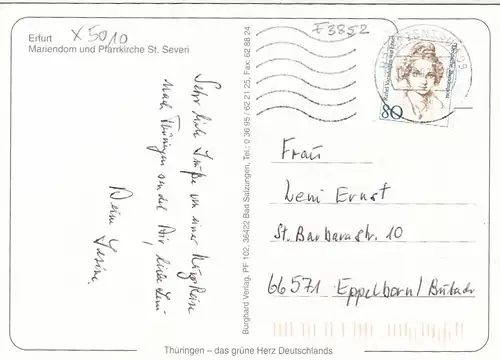 Erfurt
Mariendom und Pfarrkirche St. Severi
X5010
F3852
Sehr liebe Grüße von einer Kurzreise
nach Thüringen sendet Dir, liebe Leni
Deine
Burgard Verlag, PF 102, 36422 Bad Salzungen, Tel.: 0 36 95 / 62 21 25, Fax: 62 88 24
80
Deutsche Bundespost
Frau
Leni Ernst
St. Barbarastr. 10
66571 Eppelborn/
Thüringen – das grüne Herz Deutschlands